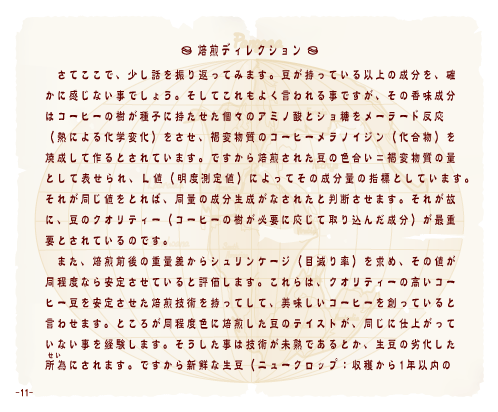 焙煎ディレクション
さてここで、少し話を振り返ってみます。豆が持っている以上の成分を、確
かに感じない事でしょう。そしてこれもよく言われる事ですが、その香味成分
はコーヒーの樹が種子に持たせた個々のアミノ酸とショ糖をメーラード反応
（熱による化学変化）をさせ、褐変物質のコーヒーメラノイジン（化合物）を
焼成して作るとされています。ですから焙煎された豆の色合い＝褐変物質の量
として表せられ、L値（明度測定値）によってその成分量の指標としています。
それが同じ値をとれば、同量の成分生成がなされたと判断させます。それが故
に、豆のクオリティー（コーヒーの樹が必要に応じて取り込んだ成分）が最重
要とされているのです。
また、焙煎前後の重量差からシュリンケージ（目減り率）を求め、その値が
同程度なら安定させていると評価します。これらは、クオリティーの高いコー
ヒー豆を安定させた焙煎技術を持ってして、美味しいコーヒーを創っていると
言わせます。ところが同程度色に焙煎した豆のテイストが、同じに仕上がって
いない事を経験します。そうした事は技術が未熟であるとか、生豆の劣化した
せい
所為にされます。ですから新鮮な生豆（ニュークロップ：収穫から1年以内の
-11-